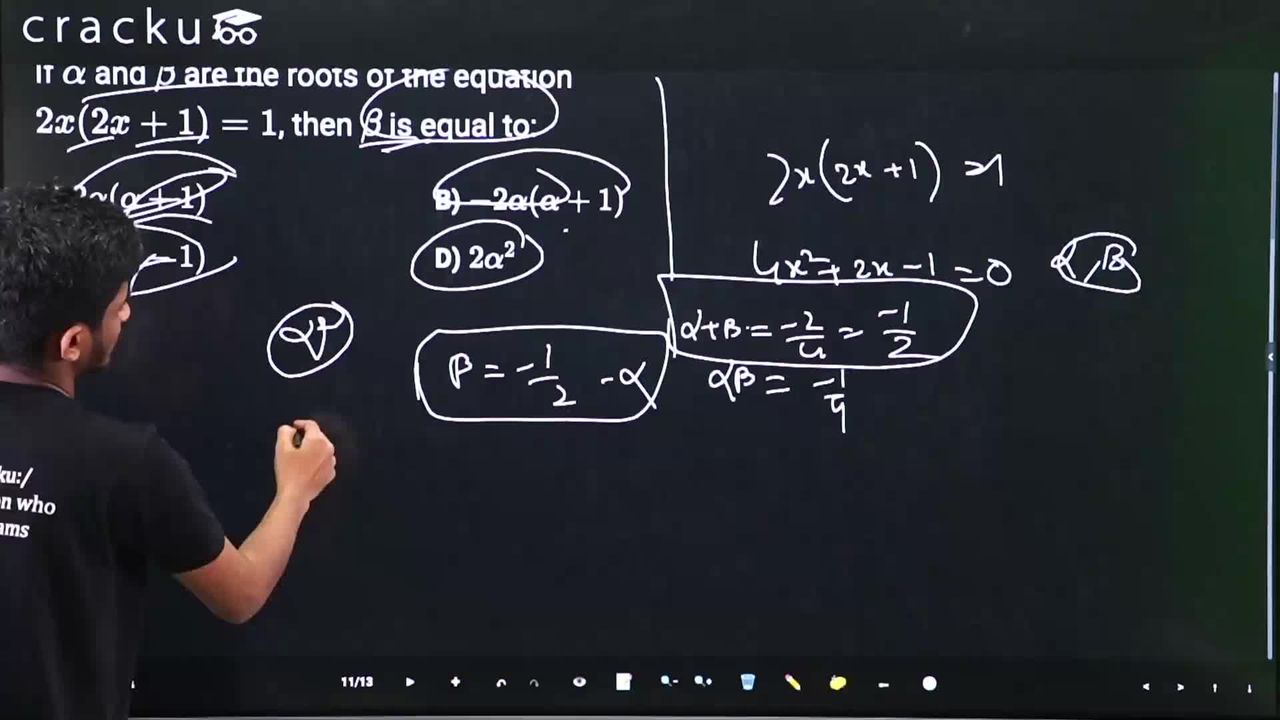 cracku
If α and β are the roots of the equation
2x(2x + 1) = 1, then β is equal to:
2α(α+1)
B) −2α(α + 1)
−1)
D) 2α²
2x(2x+1) = 1
4x²+2x−1=0 α,β
α+β = -2/4 = -1/2
β = -1/2 -α
αβ = -1/4
ku:/
n who
ams
11/13